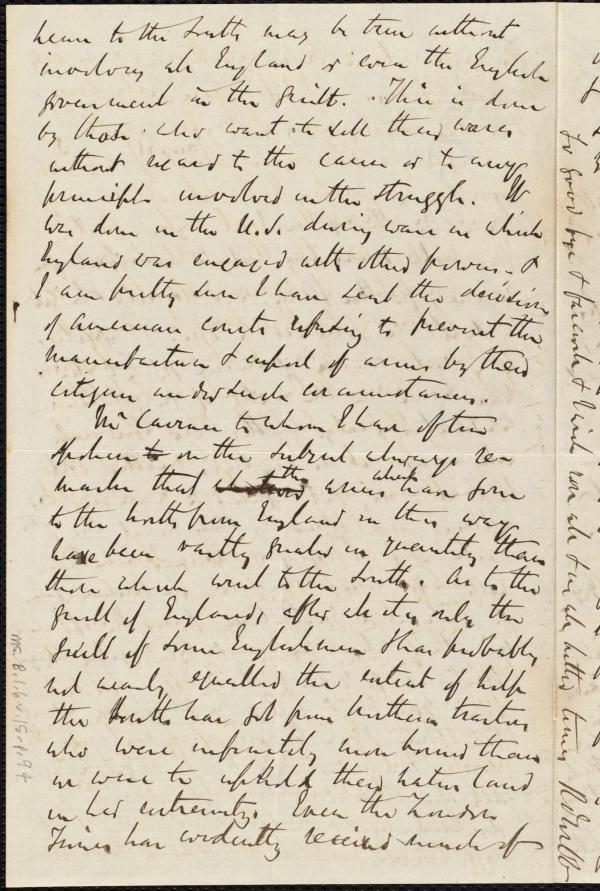 been to the South may be true without
involving all England or even the English
government in the guilt. This is done
by those who want to sell their wares
without regard to the cause or to any
principle involved in the struggle. It
was done in the U.S. during wars in which
England was engaged with other powers - &
I am pretty sure I have seen the decisions
of American courts refusing to prevent the
manufacture & export of arms by their
citizens under such circumstances.
to whom I have often
spoken to on the subject always re-
marks that the arms which have gone
to the North from England in this way
have been vastly greater in quantity than
those which went to the South. As to the
guilt of England, after all it is only the
guilt of some Englishmen & has probably
not nearly equalled the extent of help
the South has got from Northern traitors
who were infinitely more bound than
we were to uphold their native land
in her extremity. Even the London
Times has evidently received much of
So good bye & farewell &
all & in all better times RDWebb
Ms.B.1.6 v.